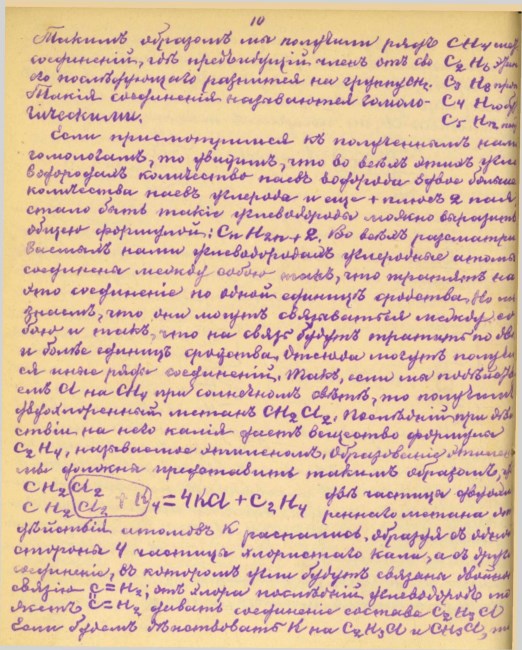 10
Такимъ образомъ мы получили рядъ CH4
соединеній, гдѣ предъидущій членъ отъ C2 H6
послѣдующаго разнится на группу CH2. C3 H8
Такія соединенія называются гомоло- C4 H10
гическими. C5 H12
Если присмотримся къ полученнымъ нами
гомологамъ, то увидимъ, что во всѣхъ этихъ
водородахъ количество паевъ водорода вдвое больше
количества паевъ углерода и еще + плюсъ 2 пая
стало быть такіе углеводороды можно выразить
общею формулой: CnH2n+2. Во всѣхъ
нами углеводородахъ углеродные атомы
соединены между собою такъ, что тратятъ на
это соединеніе по одной единицѣ сродства. Но мы
знаемъ, что они могутъ связываться между со
бою и такъ, что на связь будутъ тратить по двѣ
и болѣе единицъ сродства. Отсюда могутъ
ся иные ряды соединеній. Такъ, если мы
Cl на CH4 при солнечномъ свѣтѣ, то получимъ
двухлоренный метанъ CH2Cl2. Послѣдній при
ствіи на него калія даетъ вещество формулы
C2H4, называемое этиленомъ. Образованіе
мы должны представить такимъ образомъ,
CH2Cl2
CH2Cl2 + K4 = 4KCl + C2H4 гдѣ частица
реннаго метана
дѣйствіи атомовъ K распались, образуя съ одной
стороны 4 частицы хлористаго кали, а съ другой
соединеніе, въ которомъ угли будутъ связаны двойной
связью C=H2; отъ хлора послѣдній углеводородъ
жетъ C=H2 давать соединеніе состава C2H3Cl
Если будемъ дѣйствовать K на C2H3Cl и CH3Cl, то